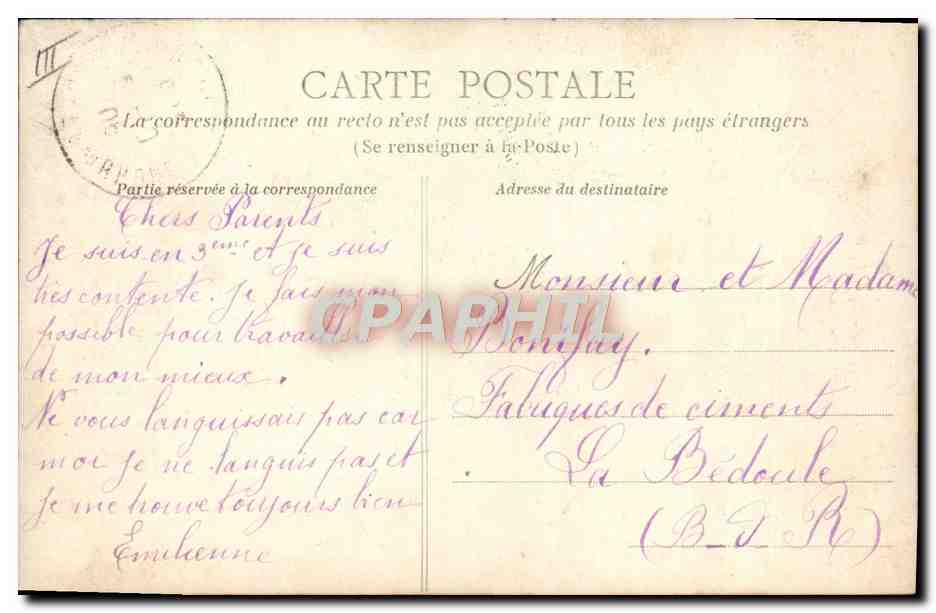 III
CARTE POSTALE
La correspondance au recto n'est pas acceptée par tous les pays étrangers
(Se renseigner à la Poste)
Partie réservée à la correspondance
Chers Parents
Je suis en 3eme et je suis
très contente. Je fais mon
possible pour travailler
de mon mieux.
Ne vous languissais pas car
moi je ne languis pas et
je me trouve toujours bien
Emilienne
Adresse du destinataire
Monsieur et Madame
Bonifay.
Fabriques de ciments
La Bédoule
(B-d-R)
CPAPHIL